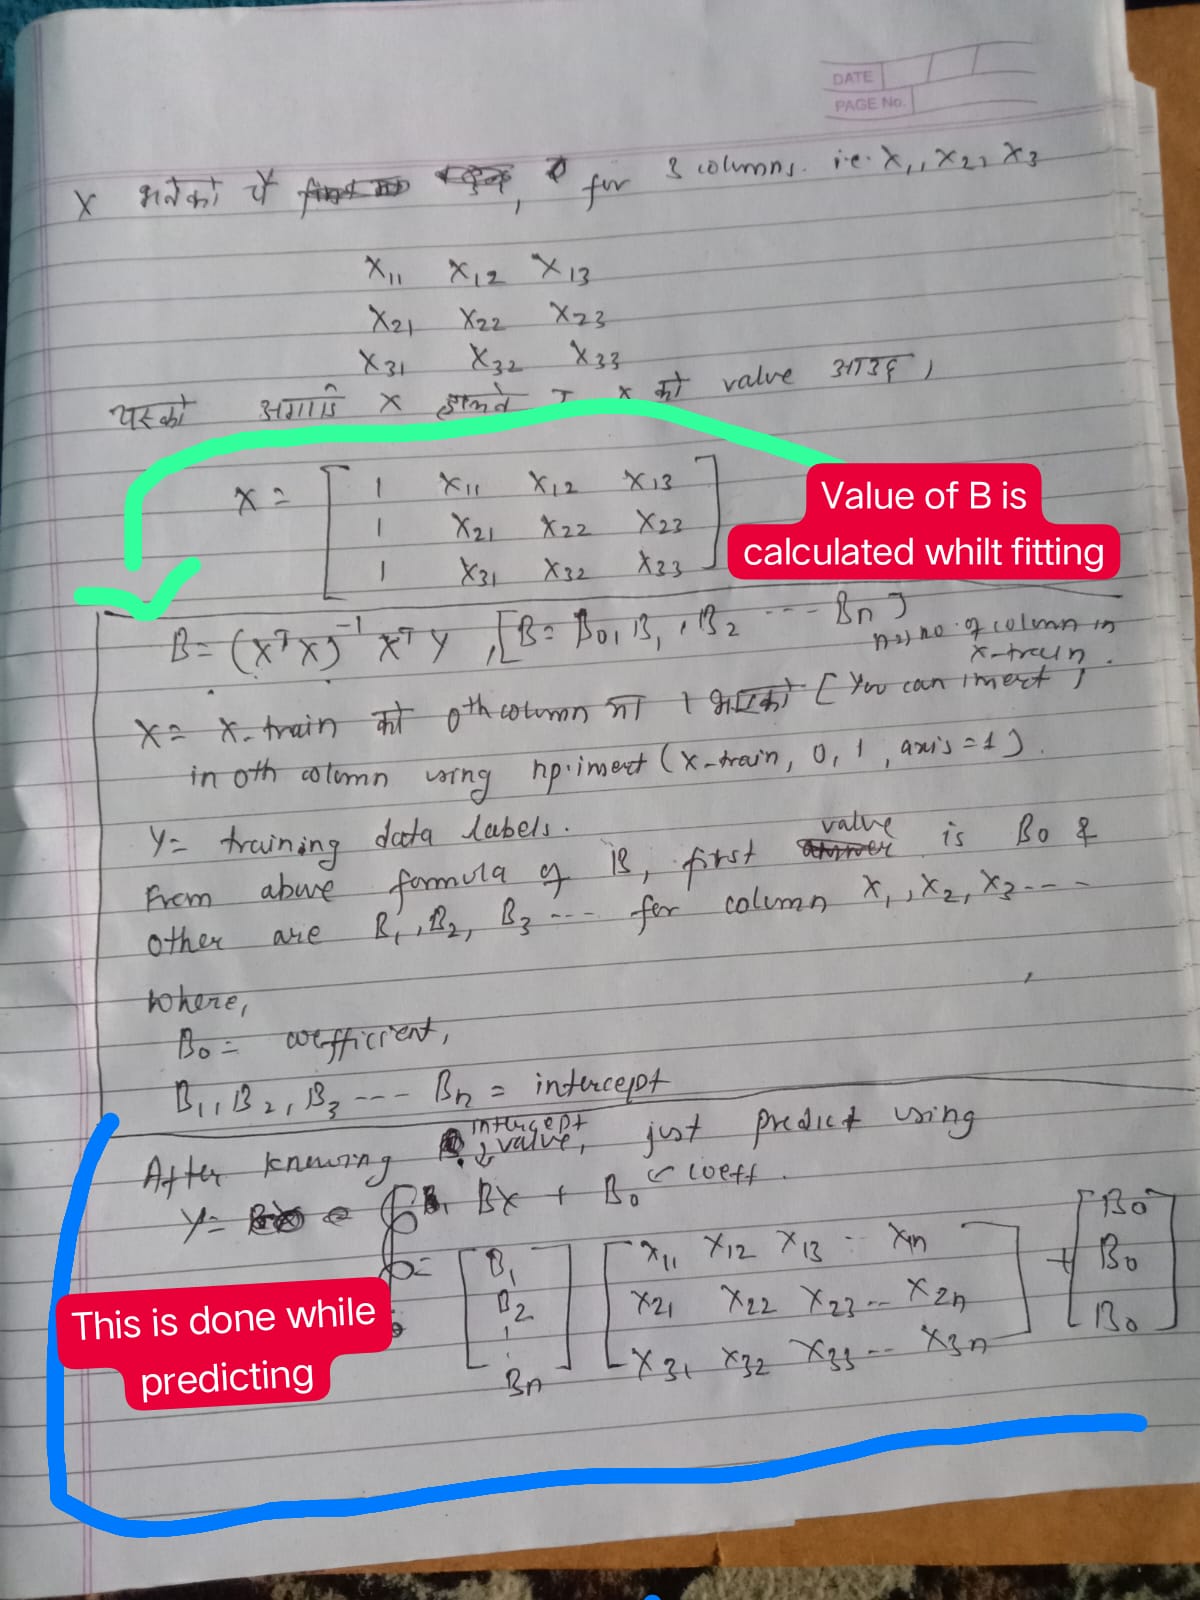 DATE
PAGE No.
X भनेको चै for 3 columns. i.e. X1, X2, X3
X11 X12 X13
X21 X22 X23
X31 X32 X33
यस्को अगाडि X को value आउछ,
X = [ 1 X11 X12 X13
1 X21 X22 X23
1 X31 X32 X33 ]
Value of B is
calculated whilt fitting
B = (XᵀX)⁻¹ Xᵀ Y, [B = B0, B1, B2 --- Bn]
n => no. of column in
X-train.
X = X-train को 0th column मा 1 [You can insert 1
in 0th column using np.insert (X-train, 0, 1, axis = 1).
Y = training data labels.
From above formula of B, first value is B0 &
other are B1, B2, B3 --- for column X1, X2, X3 ---
where,
B0 = coefficient,
B1, B2, B3 --- Bn = intercept
After knowing intercept value, just predict using
Y = BX + B0 coeff.
= [ B1 B2 Bn ] [ X11 X12 X13 -- X1n
X21 X22 X23 -- X2n
X31 X32 X33 -- X3n ] + [ B0 B0 B0 ]
This is done while
predicting